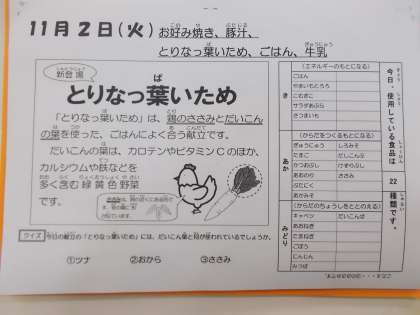 11月2日(火) お好み焼き、豚汁、
とりなっ葉いため、ごはん、牛乳
新登場
とりなっ葉いため
「とりなっ葉いため」は、鶏のささみとだいこん
の葉を使った、ごはんによく合う献立です。
だいこんの葉は、カロテンやビタミンCのほか、
カルシウムや鉄などを
多く含む緑黄色野菜
です。
クイズ 今日の献立の「とりなっ葉いため」には、だいこん葉と何が使われているでしょうか。
①ツナ ②おから ③ささみ
今日、使用している食品は 22 種類です。
き
(エネルギーのもとになる)
ごはん
やまいもとろろ
こむぎこ
サラダあぶら
さつまいも
あか
(からだをつくるもとになる)
ぎゅうにゅう しろみそ
たまご だいこんぶ
かつおぶし けずりぶし
あおのり ささみ
ぶたにく
あかみそ
みどり
(からだのちょうしをととのえる)
キャベツ だいこんば
あおねぎ
たまねぎ
ごぼう
にんじん
みつば